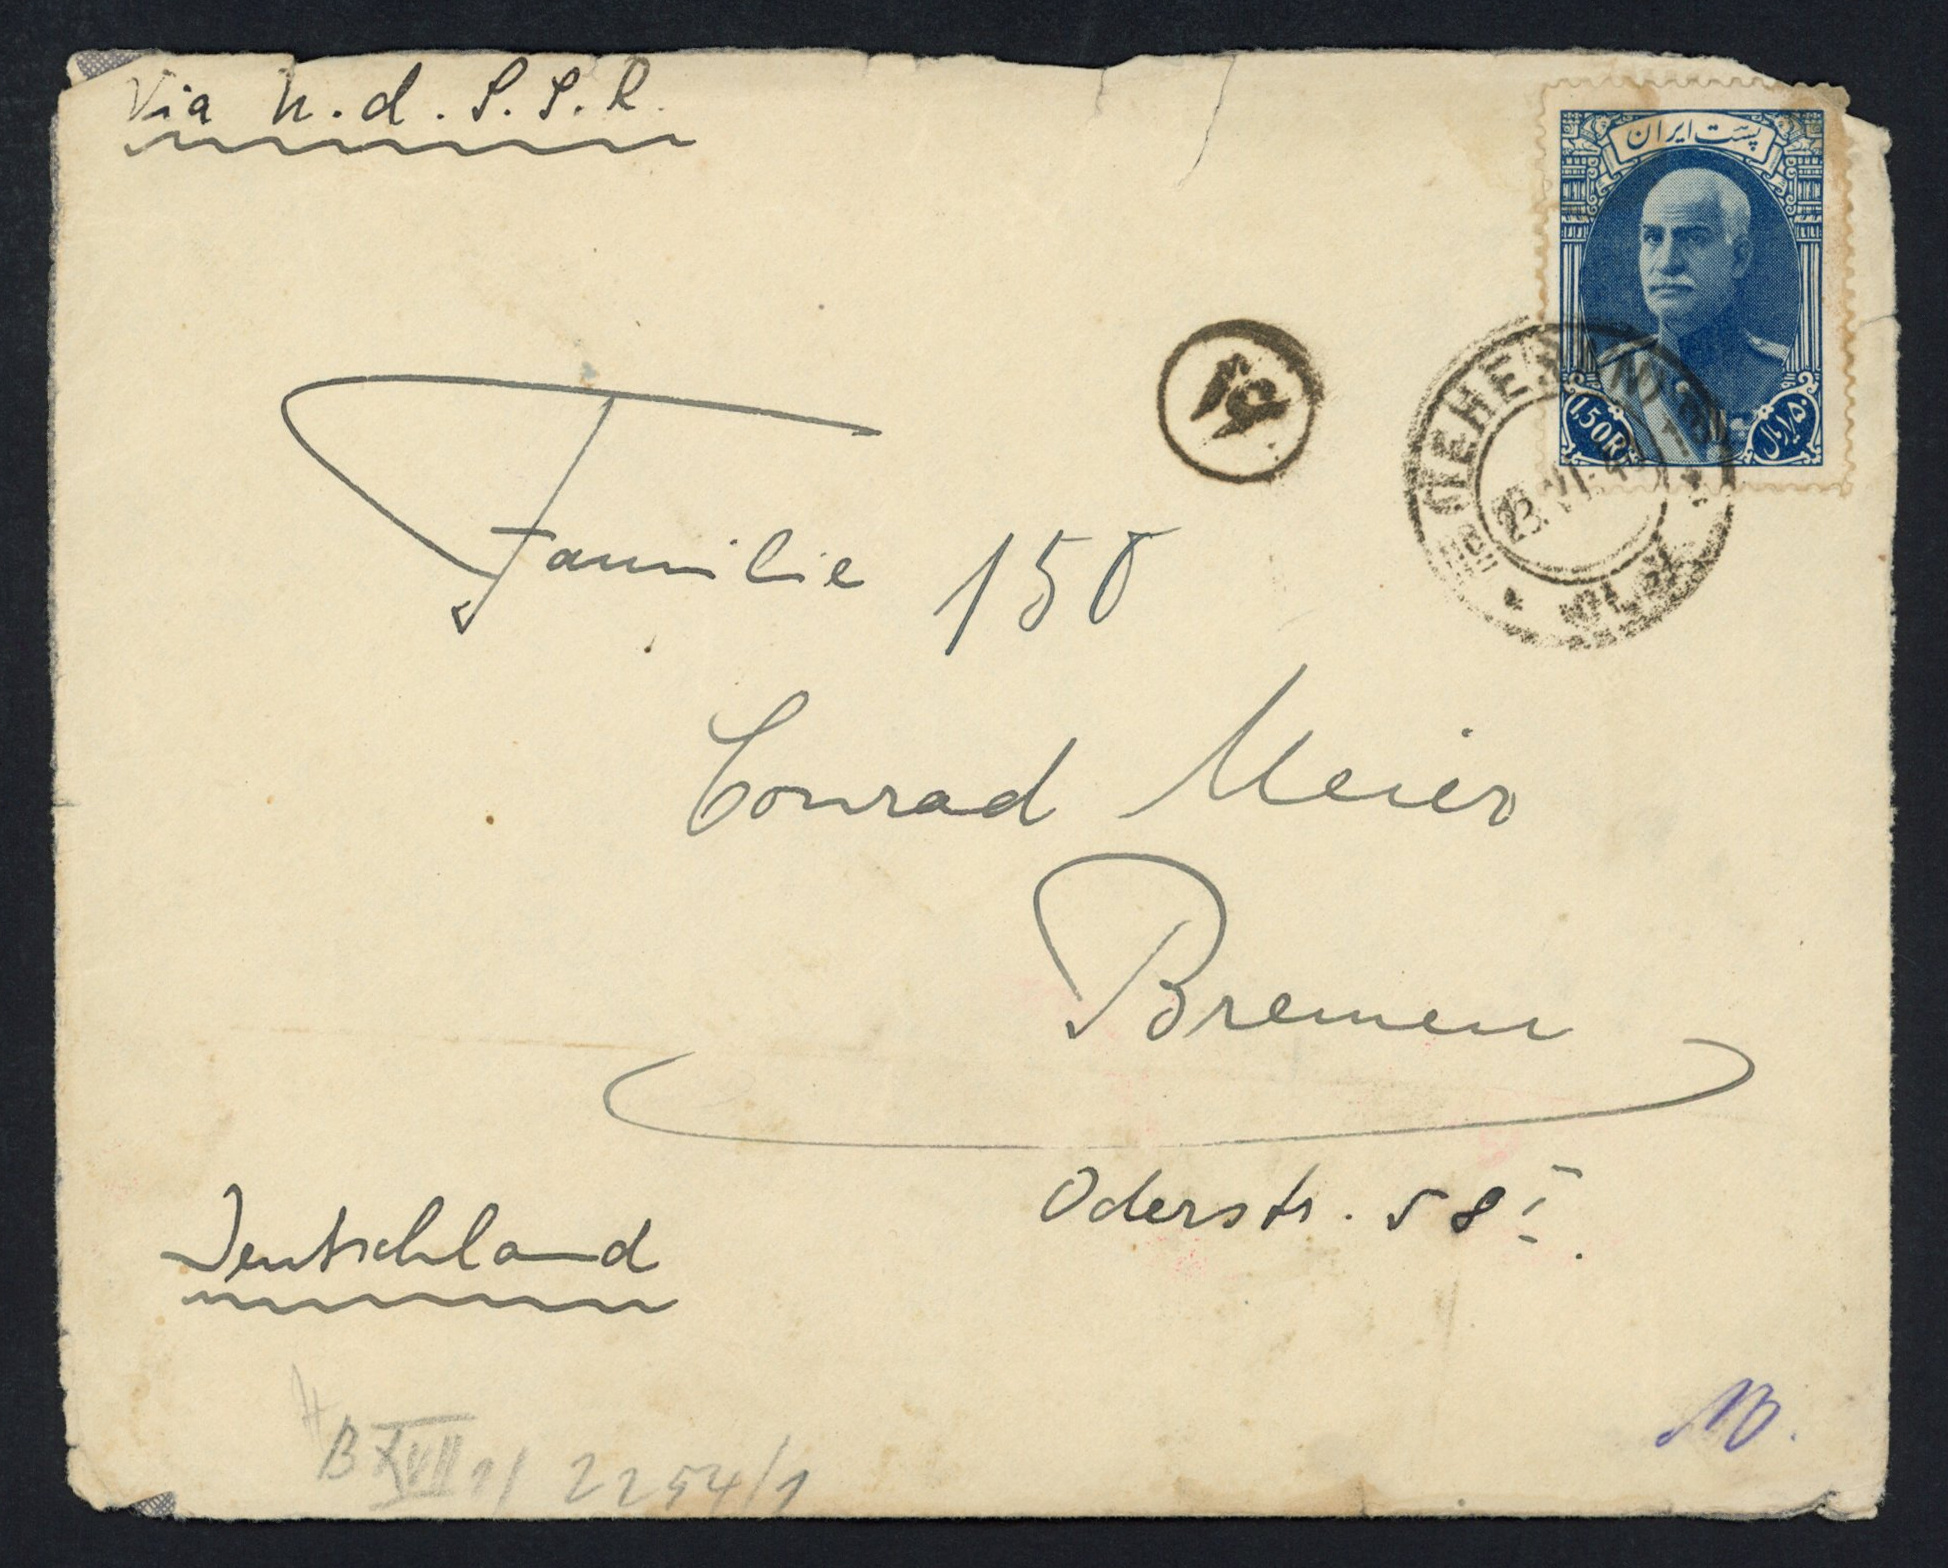 Via U.d.S.S.R.
پست ایران
1,50R
۱/۵۰ ریال
TEHERAN
23.VI.4
Familie 150
Conrad Meier
Bremen
Oderstr. 58 I.
Deutschland
B XVII 1/ 2254/1